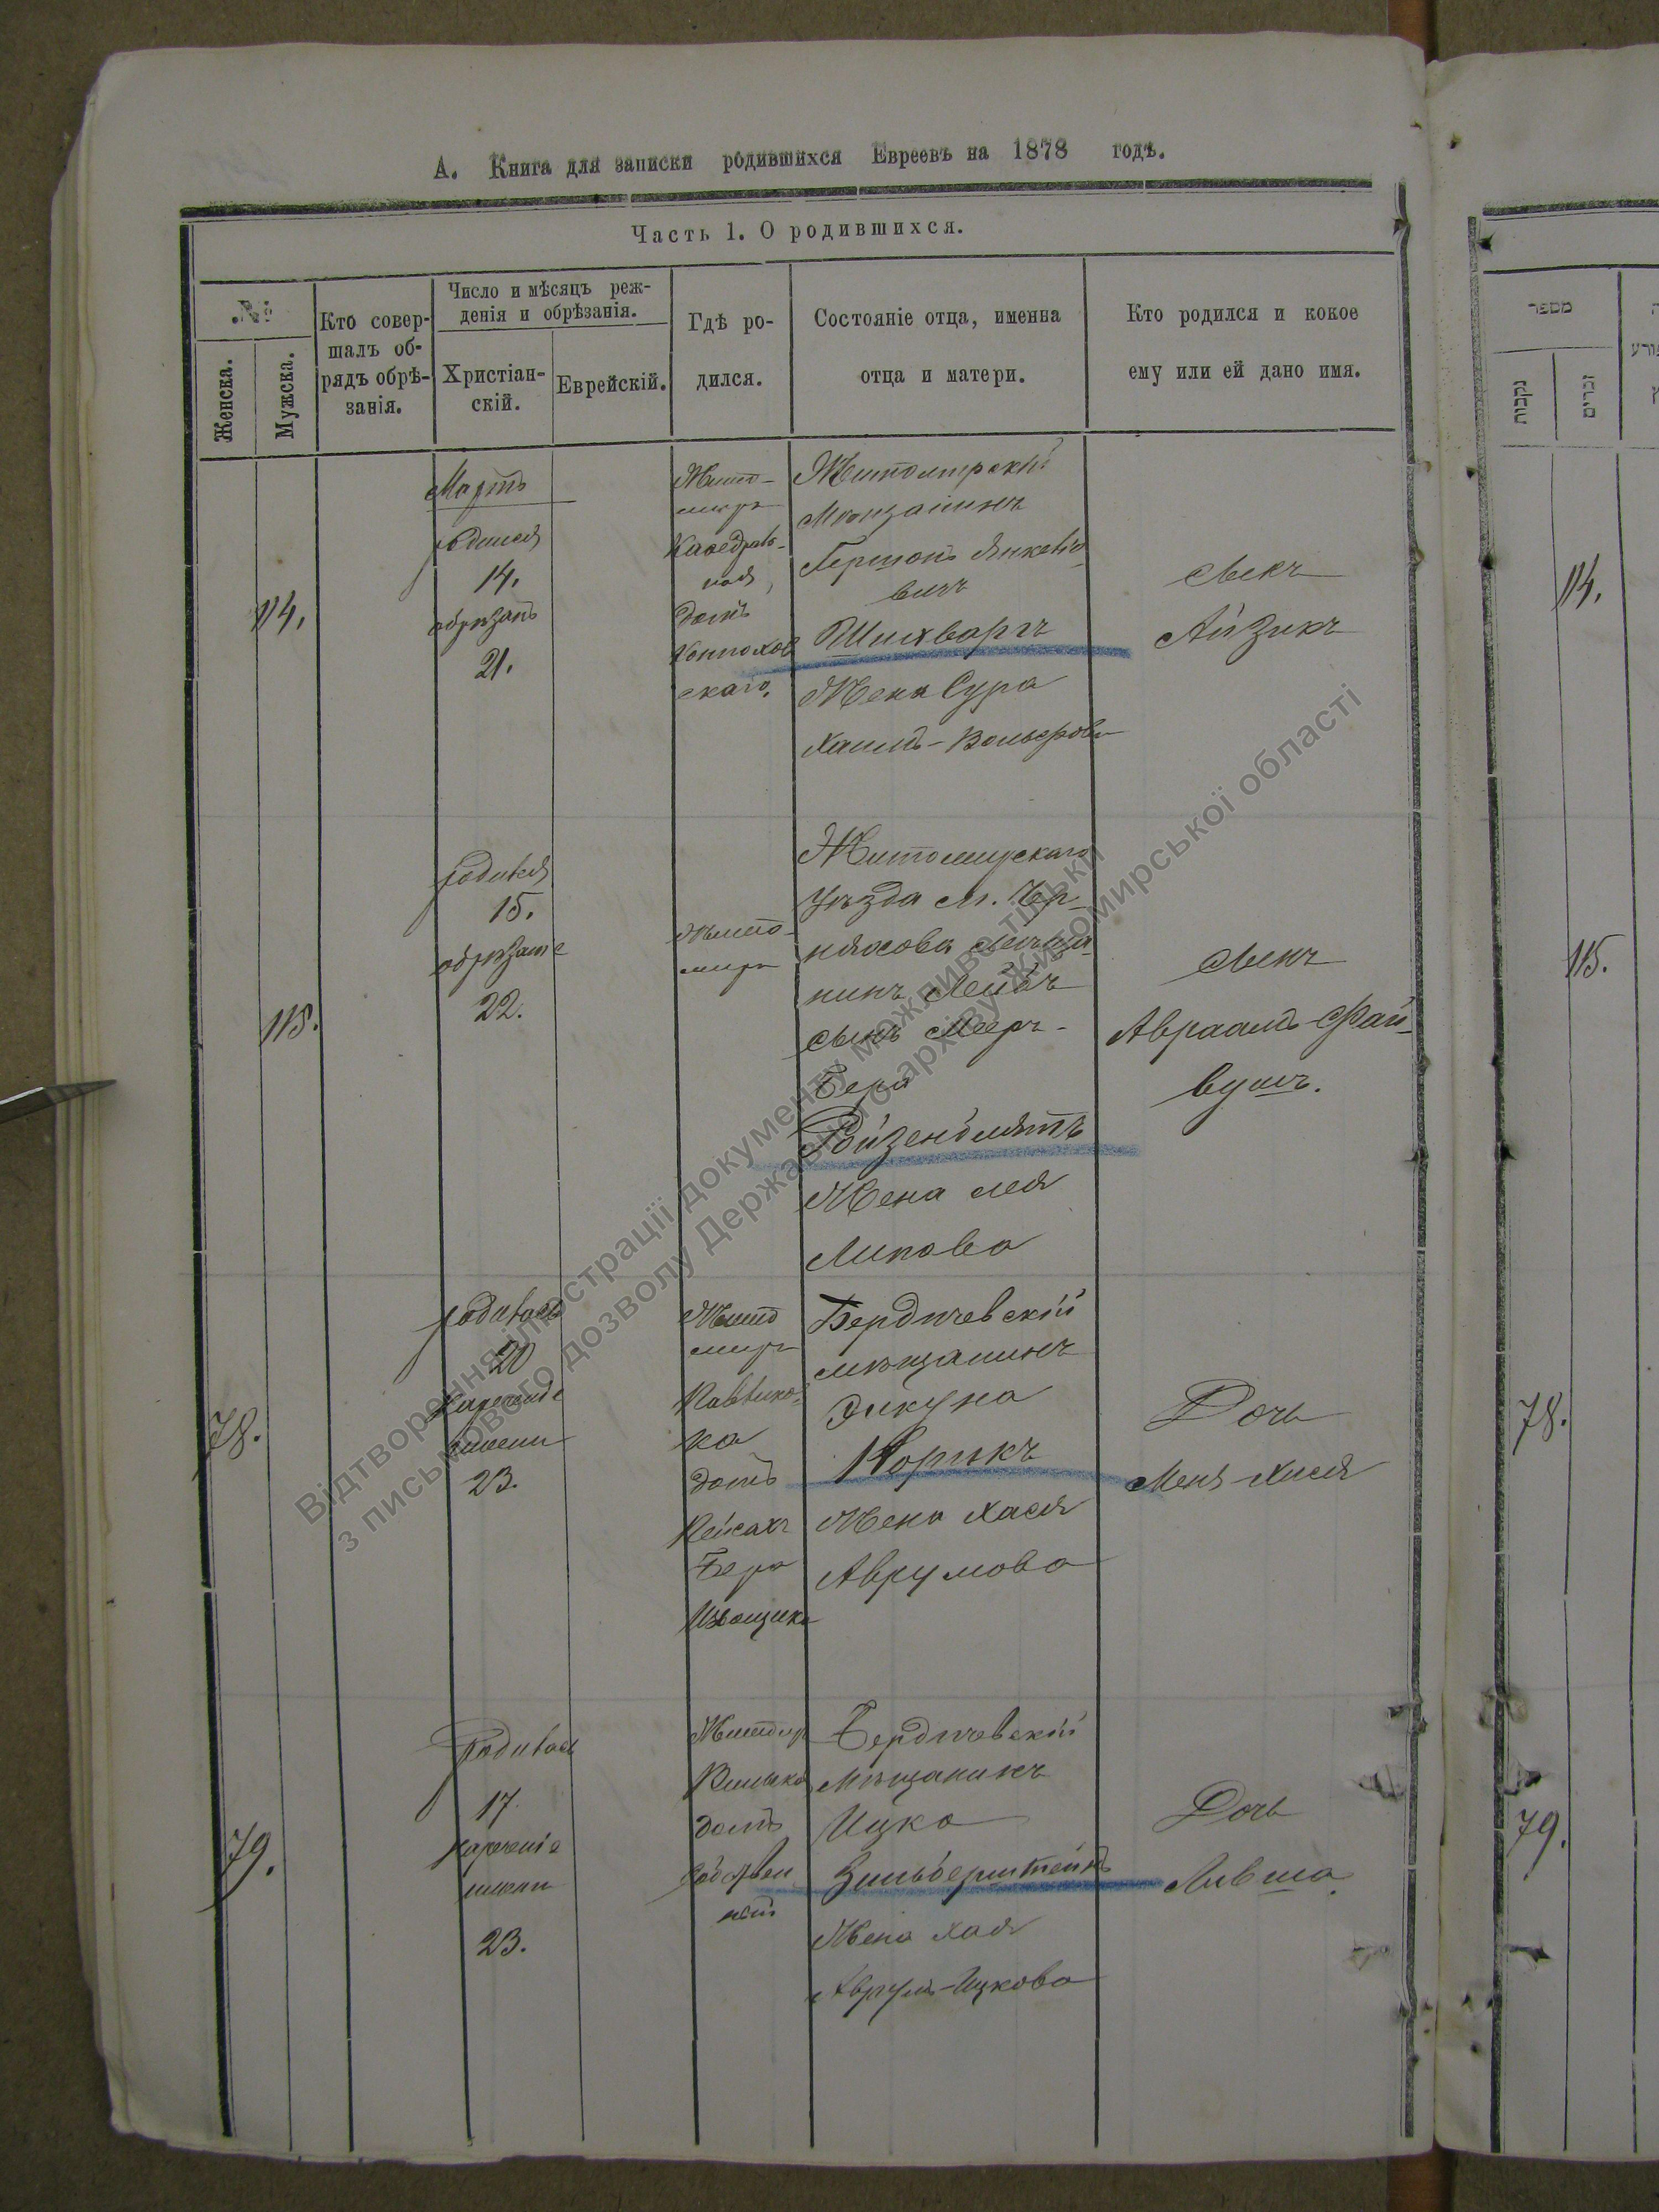 А. Книга для записки родившихся Евреевъ на 1878 годъ.
Часть 1. О родившихся.
№
Женска.
Мужска.
Кто совер-
шалъ об-
рядъ обрѣ-
занія.
Число и мѣсяцъ реж-
денія и обрѣзанія.
Христіан-
скій.
Еврейскій.
Гдѣ ро-
дился.
Состояніе отца, именна
отца и матери.
Кто родился и кокое
ему или ей дано имя.
מספר
נקבות
זכרים
114.
Мартъ
родился
14.
обрѣзанъ
21.
Жито-
миръ
Каѳедраль-
ная,
домъ
скаго.
Житомирскій
Мѣщанинъ
Гершонъ Янкеліо
вичъ
Шихваргъ
Жена Сура
Хаимъ-Вольфова
Сынъ
Айзикъ
114.
115.
родился
15.
обрѣзаніе
22.
Жито-
миръ
Житомирскаго
Уѣзда м. Чер-
няхова Мѣща-
нинъ Лейбъ
сынъ Мееръ-
Бера
Ройзенблятъ
Жена Лея
Липова
Сынъ
Авраамъ-Фай-
вушъ.
115.
78.
родилась
20
нареченіе
имени
23.
Жито
миръ
ка
домъ
Пейсахъ
Бера
Извощика
Бердичевскій
мѣщанинъ
Элкуна
Корикъ
Жена Хася
Аврумова
Дочь
Меня-Хися
78.
79.
родилась
17.
нареченіе
имени
23.
Житомиръ
Вильска
домъ
собствен
ный
Бердичевскій
Мѣщанинъ
Ицко
Зильберштейнъ
Жена Хая
Аврумъ-Ицкова
Дочь
Ливша.
79.
Відтворення ілюстрації документу можливо тільки
з письмового дозволу Державного архіву Житомирської області